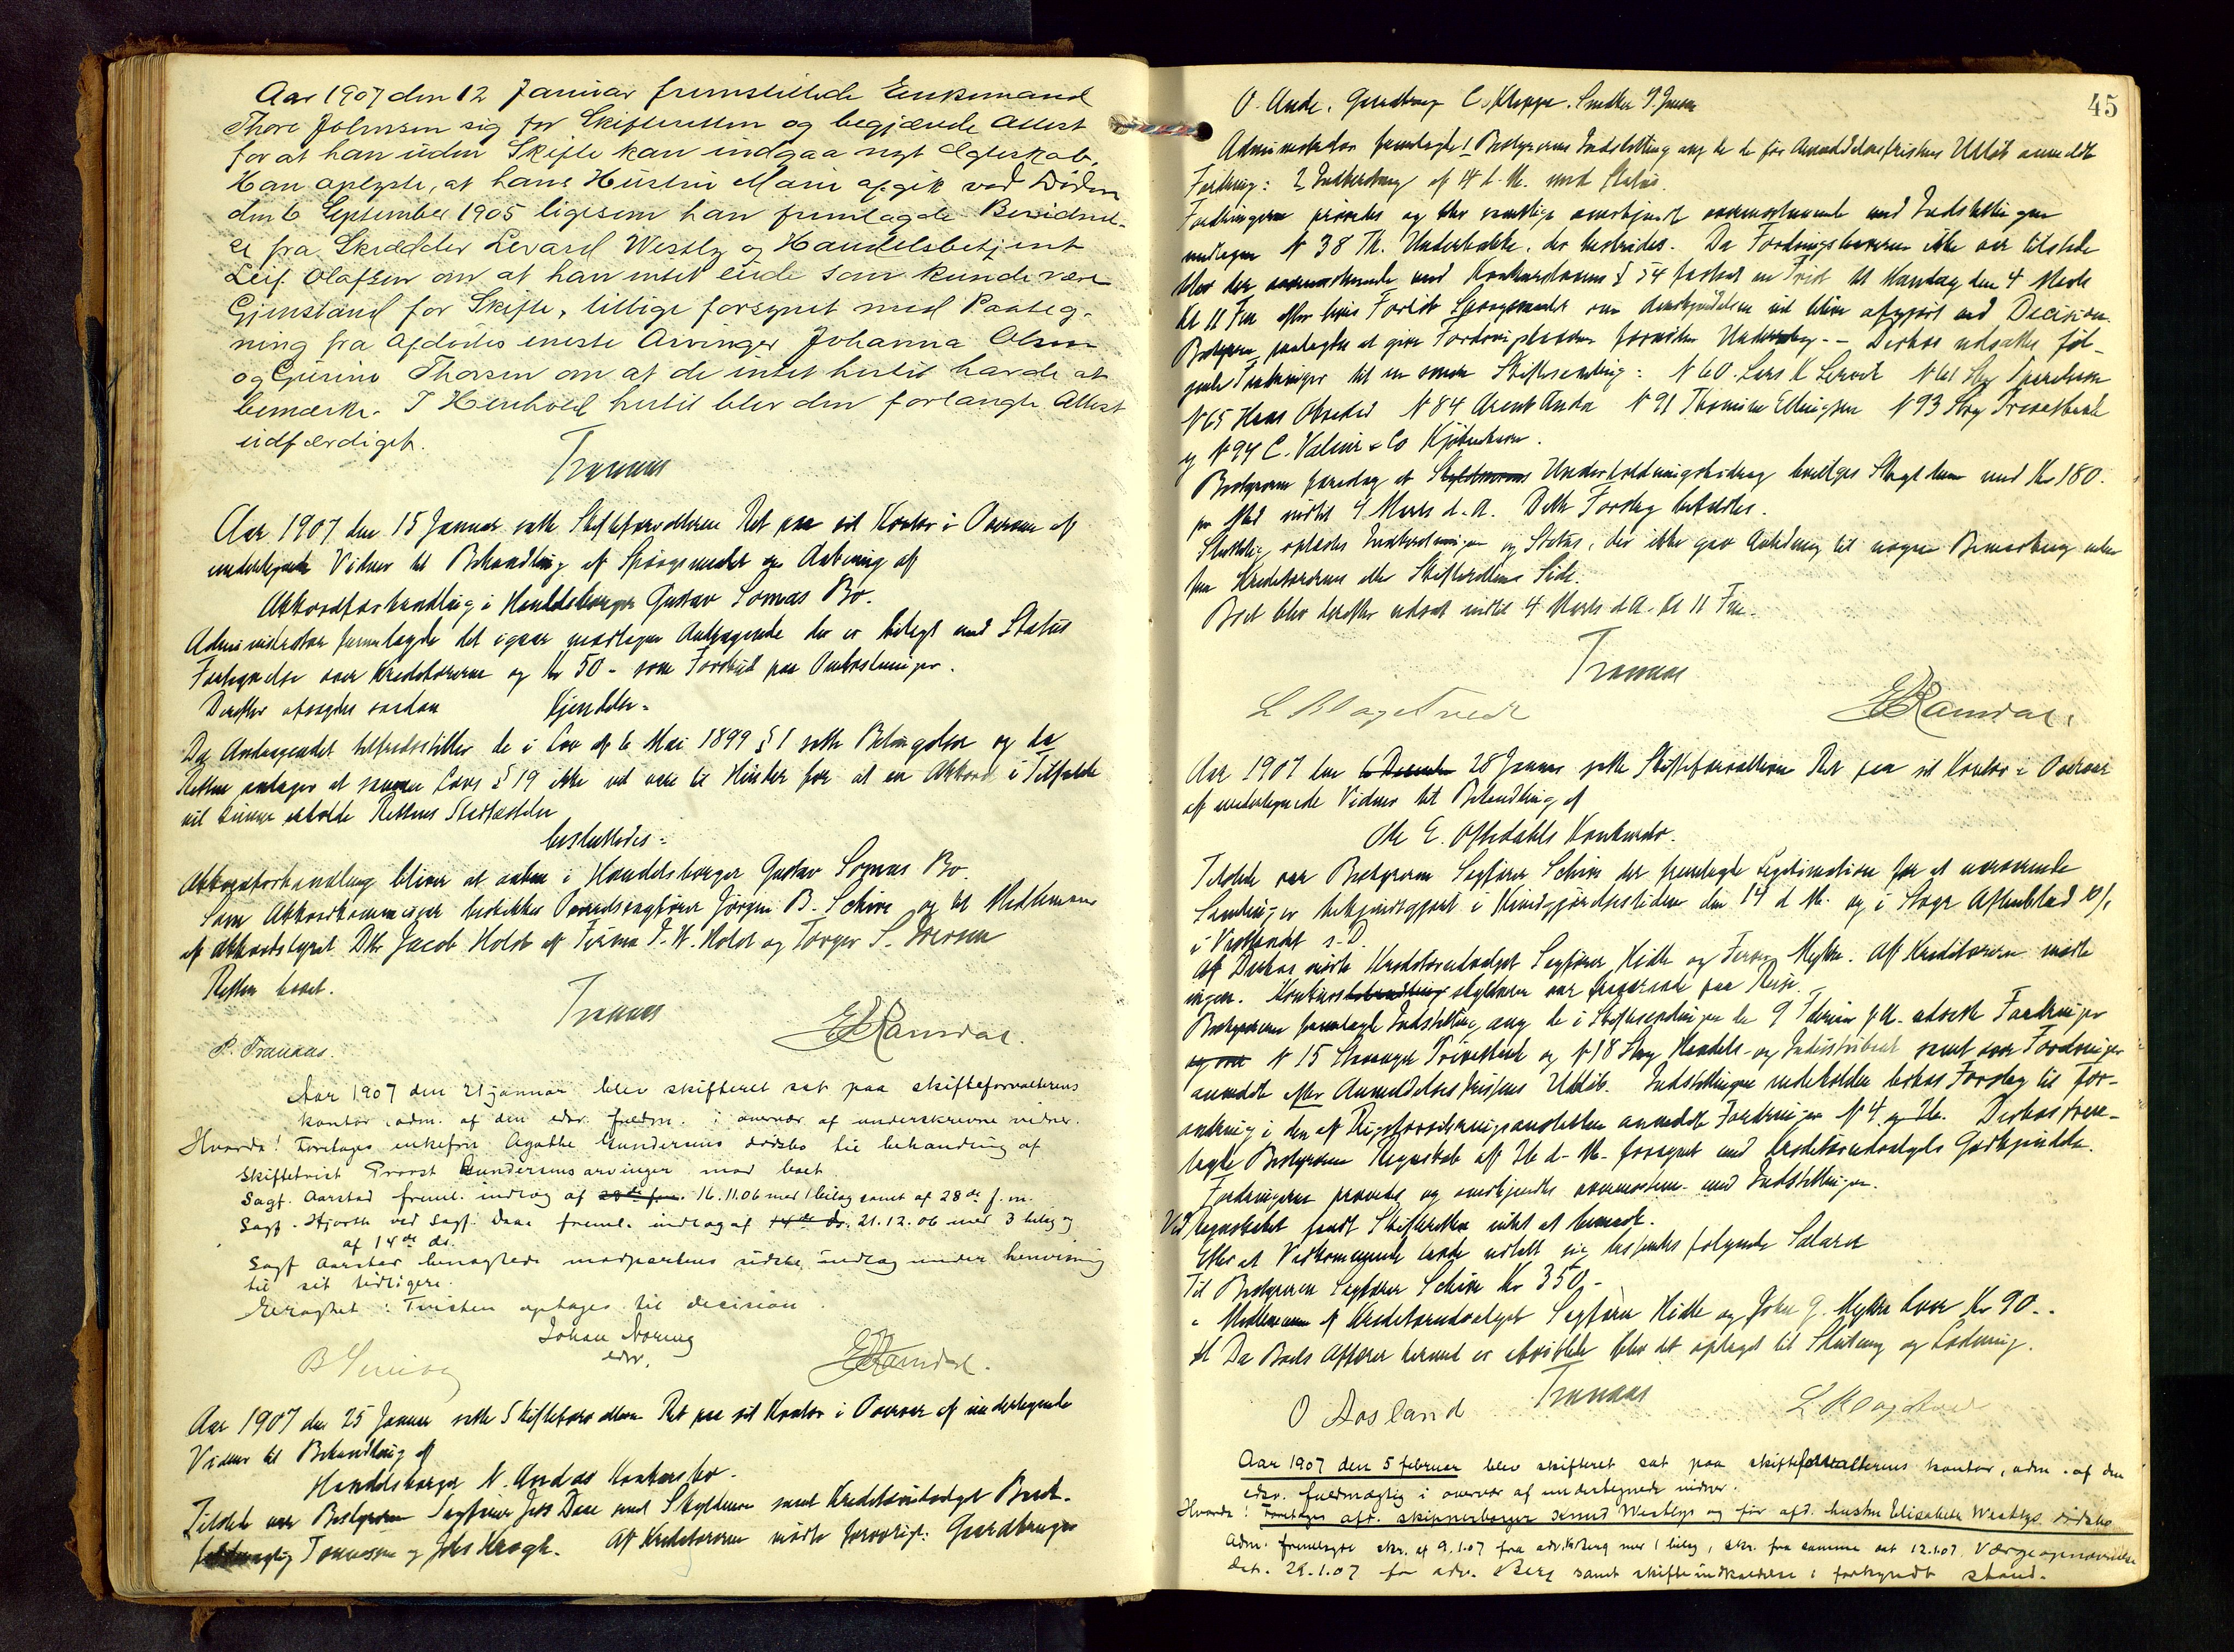 Aar 1907 den 12 Januar fremstillede Enkemand
Thore Johnsen sig for Skifteretten og begjærede Attest
for at han uden Skifte kan indgaa nyt Ægteskab.
Han oplyste, at hans Hustru Marie afgik ved Døden
den 6 September 1905 ligesom han fremlagde Bevidnel-
se fra Skrædder Levard Westly og Handelsbetjent
Leif Olafsen om at han intet eiede som kunde være
Gjenstand for Skifte, tillige forsynet med Paateg-
ning fra Afdødes eneste Arvinger Johanna Olsen
og Gurine Thorsen om at de intet hertil havde at
bemærke. I Henhold hertil blev den forlangte Attest
udfærdiget.
Tranaas
Aar 1907 den 15 Januar satte Skifteforvalteren Ret paa sit Kontor i Overvær af
undertegnede Vidner til Behandling af Spørgsmaalet om Aabning af
Akkordforhandling i Handelsborger Gustav Sømas Bo.
Administrator fremlagde det igaar modtagne Andragende der er bilagt med Status
Fortegnelse over Kreditorerne og Kr 50 - som Forskud paa Omkostninger.
Derefter afsagdes saadan Kjendelse:
Da Andragendet tilfredsstiller de i Lov af 6 Mai 1899 § 1 satte Betingelser og da
Retten antager at samme Lovs § 19 ikke vil være til Hinder for at en Akkord i Tilfælde
vil kunne erholde Rettens Stadfæstelse
besluttedes:
Akkordforhandling bliver at aabne i Handelsborger Gustav Sømas Bo.
Som Akkordkommissær beskikkes Overretssagfører Jørgen B. Schive og til Medlemmer
af Akkordstyret DHr Jacob Holst af Firma J. W. Holst og Torger S. Iversen
Retten hævet.
Tranaas
P. Tranaas.
E Ramdal.
Aar 1907 den 21 januar blev skifteret sat paa skifteforvalterens
kontor adm. af den edsv. fuldm. i overvær af underskrevne vidner.
Hvorda! Foretages enkefru Agathe Gundersens dødsbo til behandling af
Skiftetvist Provst Gundersens arvinger mod boet.
Sagf. Aarstad freml. indlæg af 16.11.06 med 1 bilag samt af 28de f. m.
Sagf. Hjorth ved Sagf. Daae freml. indlæg af 21.12.06 med 3 bilag og
af 14de ds.
Sagf Aarstad benægtede modpartens sidste indlæg under henvisning
til sit tidligere.
Eragtet: Tvisten optages til decision.
Johan Noring
edsv.
E Ramdal.
Aar 1907 den 25 Januar satte Skifteforvalteren Ret paa sit Kontor i Overvær af undertegnede
Vidner til Behandling af
Handelsborger N. Andas Konkursbo.
Tilstede var Bestyreren Sagfører Jens Daae med Skyldneren samt Kreditorudvalget Bud-
Tønnessen og Johs Krogh. Af Kreditorerne mødte forøvrigt: Gaardbruger
45
O. Anda, Gaardbruger C. Kleppe, Snedker
Administrator fremlagde 1 Bestyrerens Indstilling ang de før Anmeldelsesfristens Udløb anmeldte
Fordring: 2 Indberetning af 14 d. M. med Status.
Fordringerne prøvedes og blev samtlige anerkjendt overensstemmende med Indstillingen
undtagen N 38 Th. Underbakke, der bestredes. Da Fordringshaveren ikke var tilstede
blev der overensstemmende med Konkurslovens § 54 fastsat en Frist til Mandag den 4 Marts
Kl 11 Fm efter hvis Forløb Spørgsmaalet om Anerkjendelsen vil blive afgjort ved Decision.
Bestyreren paalagdes at give Fordringshaveren fornøden Underretning. - Derhos udsattes føl-
gende Fordringer til en senere Skiftesamling: N 60. Lars K N 61
N 65 Hans N 84 Arent Anda N 91 Thomine Ellingsen N 93 Stvg Privatbank
og N 94 C. Valeur & Co Kjøbenhavn.
Bestyreren foreslog at Underholdningsbidrag bevilges Skyldneren med Kr 180.
pr Md indtil 4 Marts d. A. Dette Forslag bifaldtes.
Sluttelig oplæstes Indberetningen og Status, der ikke gav Anledning til nogen Bemærkning uden
fra Kreditorernes eller Skifterettens Side.
Boet blev derefter udsat indtil 4 Marts d A. Kl 11 Fm.
Tranaas
E Ramdal.
Aar 1907 den 28 Januar satte Skifteforvalteren Ret paa sit Kontor i Overvær
af undertegnede Vidner til Behandling af
E. Oftedahls Konkursbo.
Tilstede var Bestyreren Sagfører Schive der fremlagde Legitimation for at nærværende
Samling er bekjendtgjort i Kundgjørelsestidende den 14 d M. og i Stvgr Aftenblad
i Vestlandet s. D.
Derhos mødte Kreditorudvalget Sagfører Hidle og Myhre. Af Kreditorerne mødte
ingen. Konkursskyldneren var fraværende paa Reise.
Bestyreren fremlagde Indstilling ang de i Skiftesamlingen de 9 Februar f A. udsatte Fordringer
N 15 Stavanger Privatbank og N 18 Stvg Handels- og Industribank samt over Fordringer
anmeldte efter Anmeldelsesfristens Udløb. Indstillingen indeholder derhos Forslag til For-
andring i den af Rigsforsikringsanstalten anmeldte Fordringer N 4 og 26. Derhos frem-
lagde Bestyreren Regnskab af 26 d. M. forsynet med Kreditorudvalgets Godkjendelse.
Fordringerne prøvedes og anerkjendtes overensstem. med Indstillingen.
Ved Regnskabet fandt Skifteretten intet at bemærke.
Efter at Vedkommende havde udtalt sig bestemtes følgende Salærer
Til Bestyreren Sagfører Schive Kr 350,-
" Medlemmerne af Kreditorudvalget Sagfører Hidle og John G. Myhre hver Kr 90..
Da Boets Affærer hermed er afviklede blev det optaget til Slutning og Lodning.
O Aosland
Tranaas
Aar 1907 den 5 februar blev skifteret sat paa skifteforvalterens kontor, adm. af den
edsv. fuldmægtig i overvær af undertegnede vidner.
Hvorda! Foretages afd. skipperborger Knud Westlys og før afd. hustru Elisabeth Westlys dødsbo
Adm. fremlagde skr. af 9.1.07 fra adv. Berg med 1 bilag, skr. fra samme dat 12.1.07. Værgeopnævnelse
dat. 29.1.07 for adv. Berg samt skifteindkaldelse i forkyndt stand.